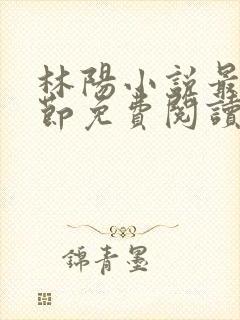 林陽小說最
節免費閱讀
錦青墨